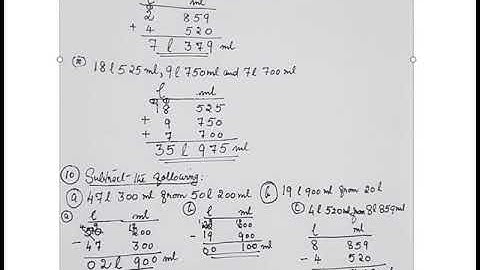 l ml
2 859
+ 4 520
7 l 379 ml
18 l 525 ml, 9 l 750 ml and 7 l 700 ml
l ml
18 525
+ 9 750
+ 7 700
35 l 975 ml
10 Subtract the following:
a 47 l 300 ml from 50 l 200 ml b 19 l 900 ml from 20 l
c 4 l 520 ml from 8 l 859 ml
a l ml
50 200
- 47 300
02 l 900 ml
b l ml
- 19 900
00 100 ml
l ml
8 859
- 4 520